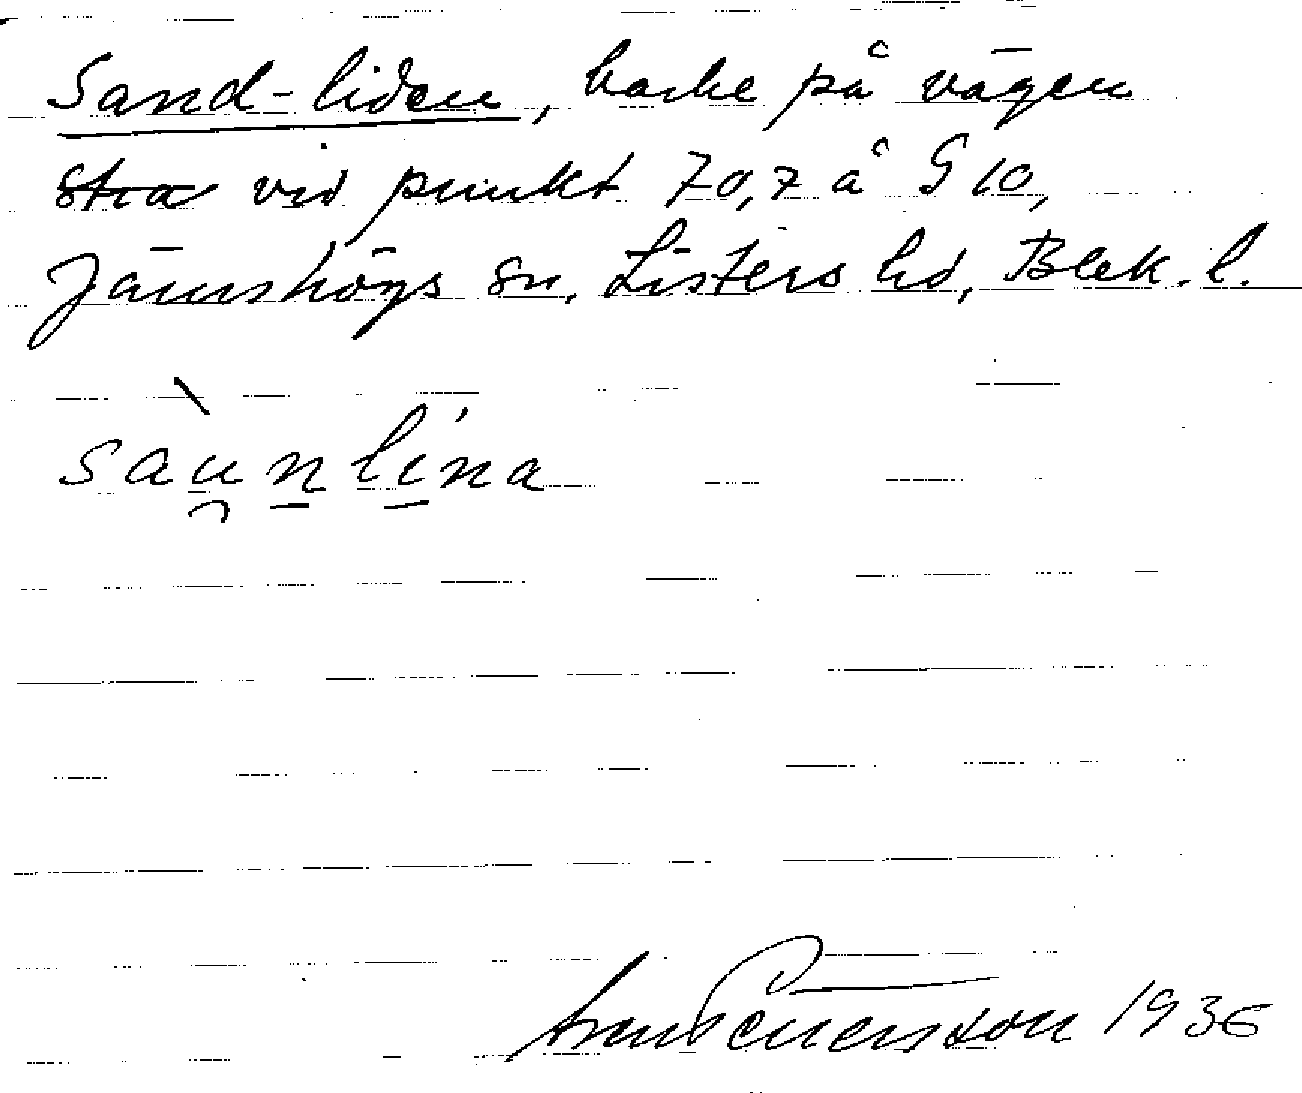 Sand-liden, backe på vägen
stra vid punkt 70,7 å G 10,
Jämshögs sn, Listers hd, Blek. l.
sàu̯nlína
1936